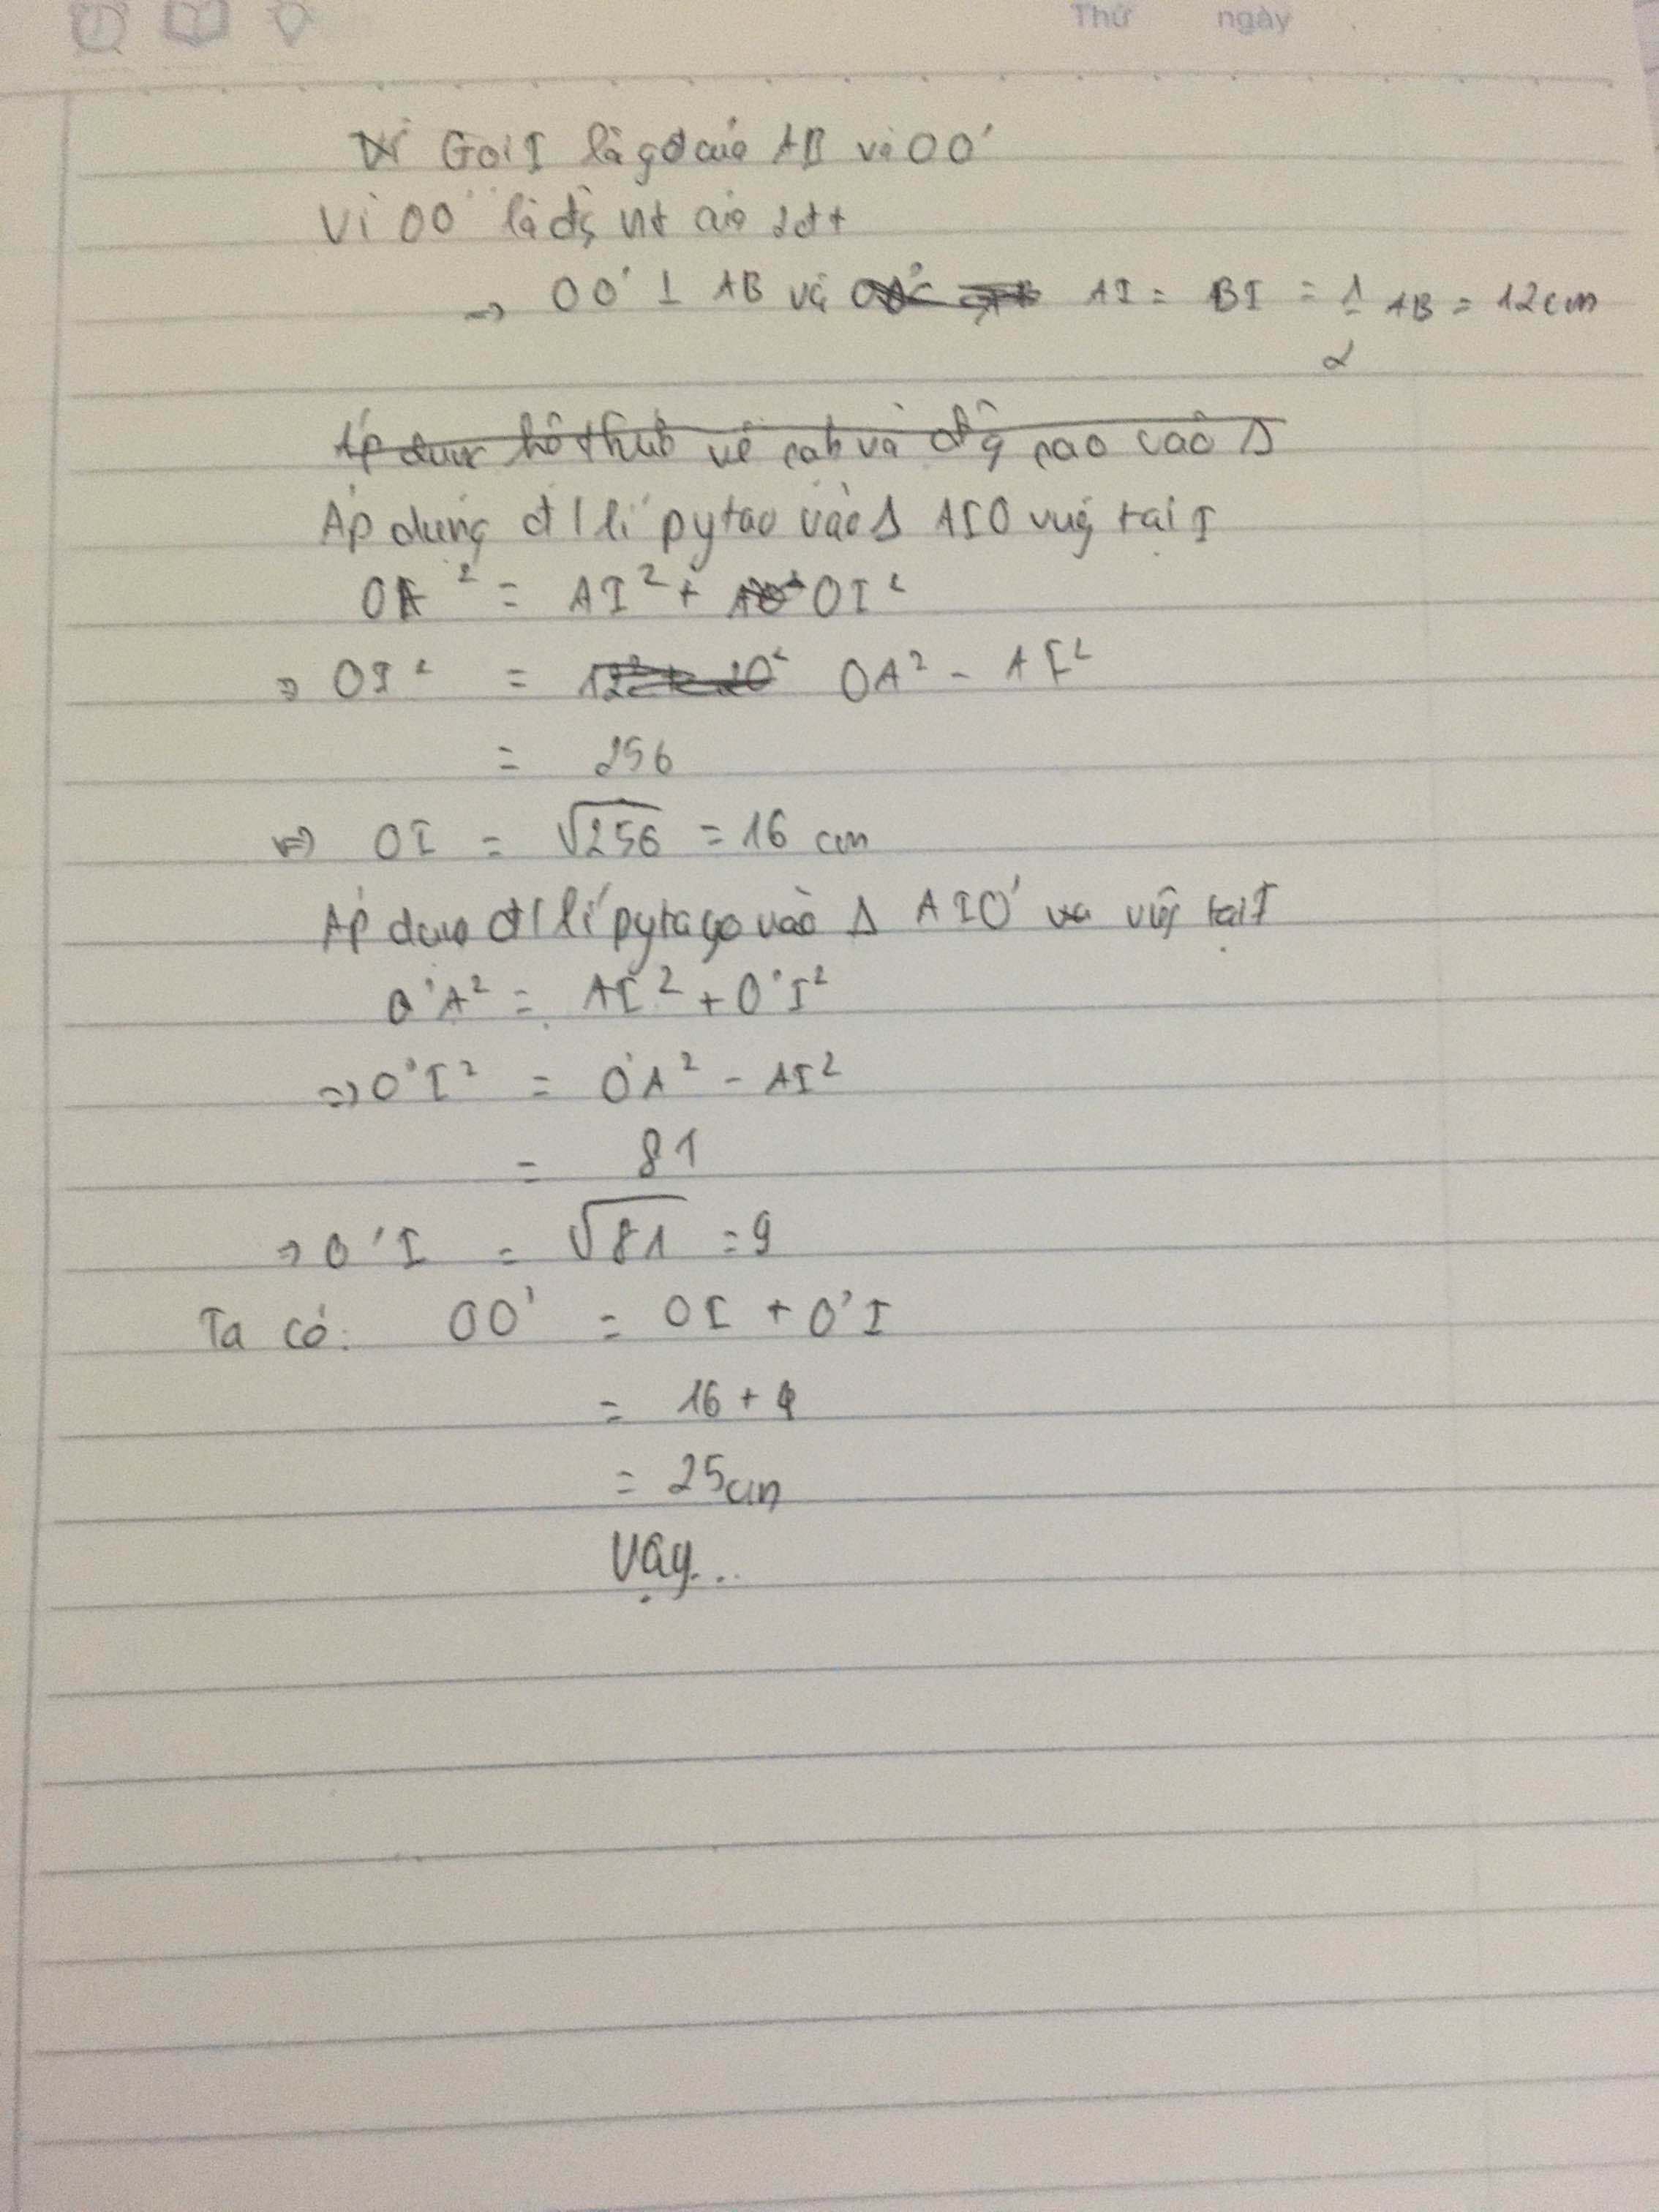 Thứ ngày
Gọi I là gđ của AB và OO'
Vì OO' là đg nt của 2đt
=> OO' ⊥ AB và AI = BI = 1/2 AB = 12cm
Áp dụng hệ thức về cạh và đg cao vào Δ
Áp dụng đ/lí pytao vào Δ AIO vug tại I
OA² = AI² + OI²
=> OI² = OA² - AI²
= 256
=> OI = √256 = 16 cm
Áp dug đ/lí pytago vào Δ AIO' vug tại I
O'A² = AI² + O'I²
=> O'I² = O'A² - AI²
= 81
=> O'I = √81 = 9
Ta có: OO' = OI + O'I
= 16 + 9
= 25cm
Vậy...